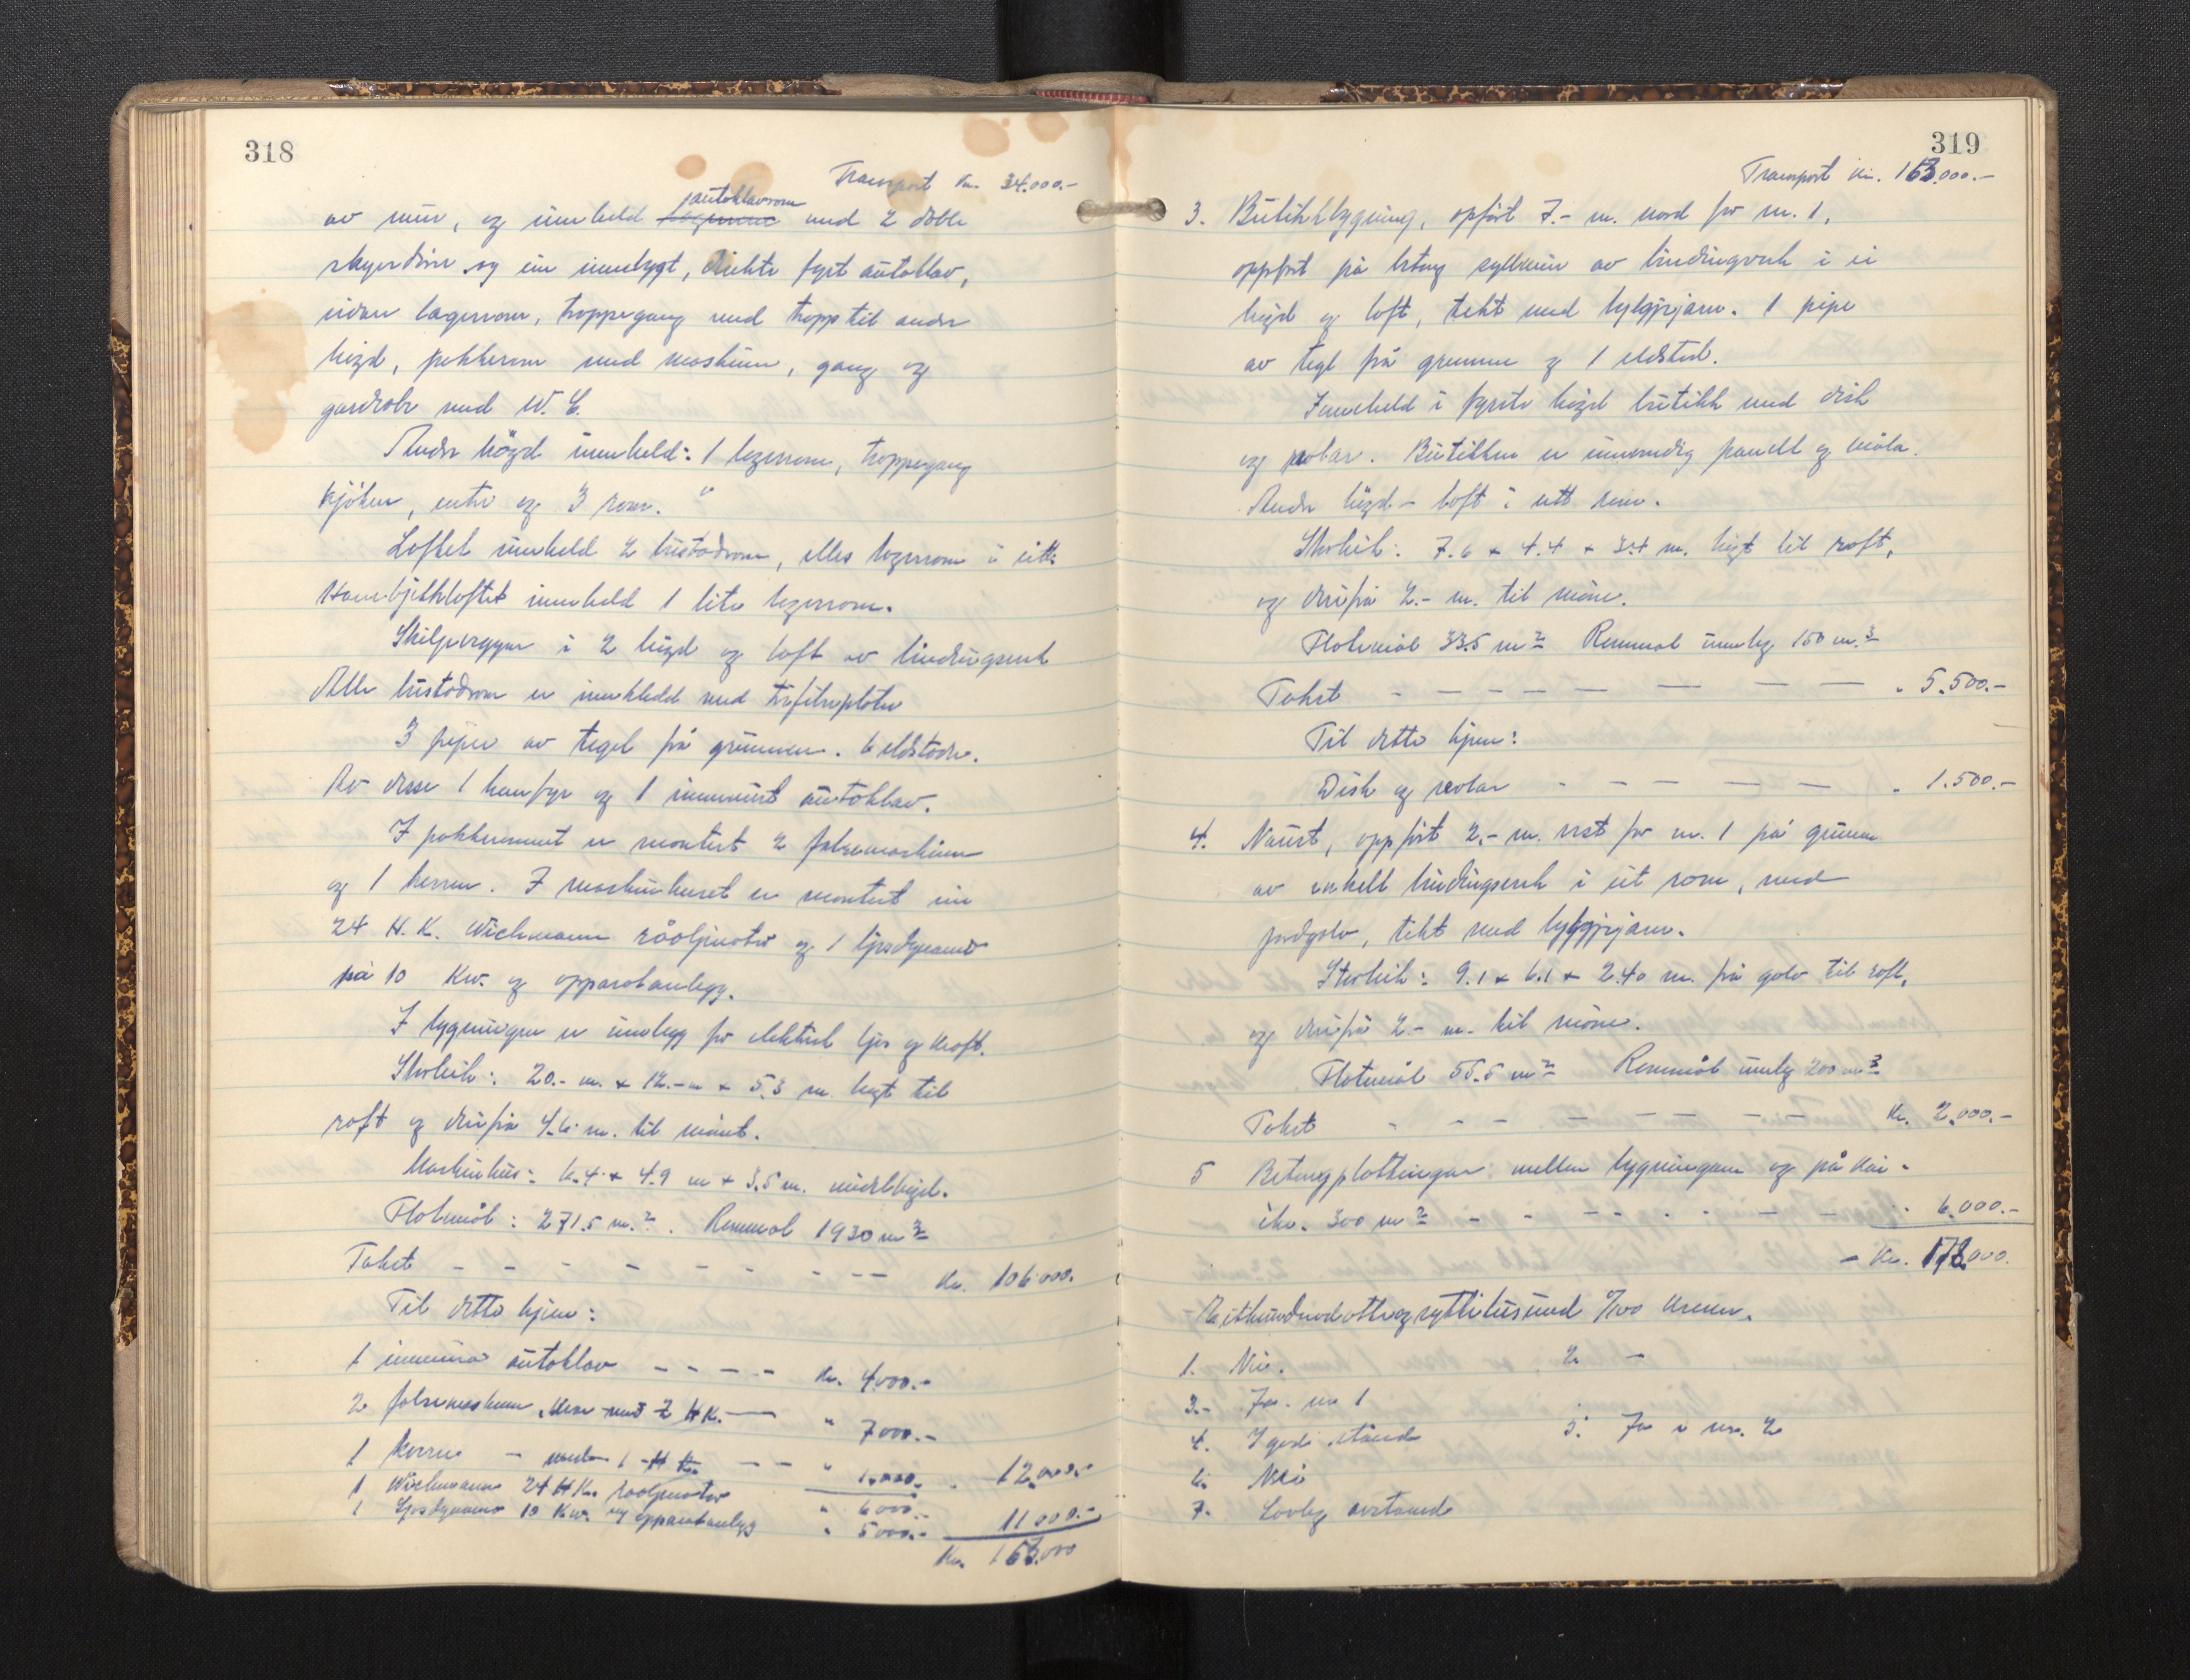 318
Transport Kr. 34.000.-
autoklavrom
av mur, og inneheld med 2 doble
skyvedører og ein innebygt, direkte fyrt autoklav,
vidare lagerrom, troppegang med tropp til andre
høgd, pakkerom med maskiner, gang og
garderobe med W.C.
Andre högd inneheld: 1 lagerrom, troppegang
kjöken, entre og 3 rom.
Loftet inneheld 2 bustadrom, elles lagerrom i eitt.
Hanebjelkloftet inneheld 1 lite lagerrom.
Skiljevegger i 2 høgd og loft av bindingsverk
Alle bustadrom er innekledd med trefiberplater
3 piper av tegel frå grunnen. 6 eldstader.
Av desse 1 kanfyr og 1 innmurt autoklav.
I pakkerommet er montert 2 falsemaskiner
og 1 kerrem. I maskinhuset er montert ein
24 H.K. Wichmann råoljemotor og 1 ljosdynamo
på 10 Kw. og apparatanlegg.
I bygningen er innlegg for elektrisk ljos og kraft.
Storleik: 20.- m. x 12.- m x 5.3 m. høgt til
raft og derifrå 4.6 m. til mønet.
Maskinhus: 6.4 x 4.9 m x 3.5 m. middelhøgd.
Flatemål: 271.5 m.². Rommål 1930 m³
Takst - - - - - - - - - Kr. 106.000.
Til dette kjem:
1 innmura autoklav - - - - - Kr. 4000.-
2 falsemaskiner, kvar med 2 HK. - " 7000.-
1 - 1 H K. - - " 1.000.- " 12.000.-
1 Wichmann 24 H K. råoljemotor " 6000.-
1 Ljosdynamo 10 Kw. og apparatanlegg " 5000.- 11000.-
Kr. 163.000
319
Transport Kr. 163.000.-
3. Butikkbygning, opført 7.- m. nord for nr. 1,
oppført på betong syllmur av bindingverk i ei
høgd og loft, tekt med bylgjejarn. 1 pipe
av tegl frå grunnen og 1 eldsted.
Inneheld i fyrste høgd butikk med disk
og reolar. Butikken er innvendig panelt og måla.
Andre høgd - loft i ett rom.
Storleik: 7.6 x 4.4 x 3.4 m. høgt til raft,
og derifrå 2.- m. til møne.
Flatemål 33.5 m² Rommål innlag 150 m.³
Takst - - - - - - - - - " 5.500.-
Til dette kjem:
Disk og reolar - - - - - - " 1.500.-
4. Naust, oppført 2.- m. vest for nr. 1 på grunn
av enkelt bindingsverk i eit rom, med
jordgolv, tekt med bylgjejarn.
Storleik: 9.1 x 6.1 x 2.40 m. frå golv til raft,
og derifrå 2.- m. til møne.
Flatemål 55.5 m² Rommål innlag 200 m³
Takst - - - - - - - - Kr. 2.000.-
5 Betongplattingar mellom bygningane og på kai.
ikr. 300 m² - - - - - - - - - " 6.000.-
- Kr. 178.000.
Eithundreogottiogsyttitusund 0/100 kroner.
1. Nei. 2 -
3.- Ja. nr 1
4. I god stand 5. Ja i nr. 2
6. Nei
7. Lovleg avstand